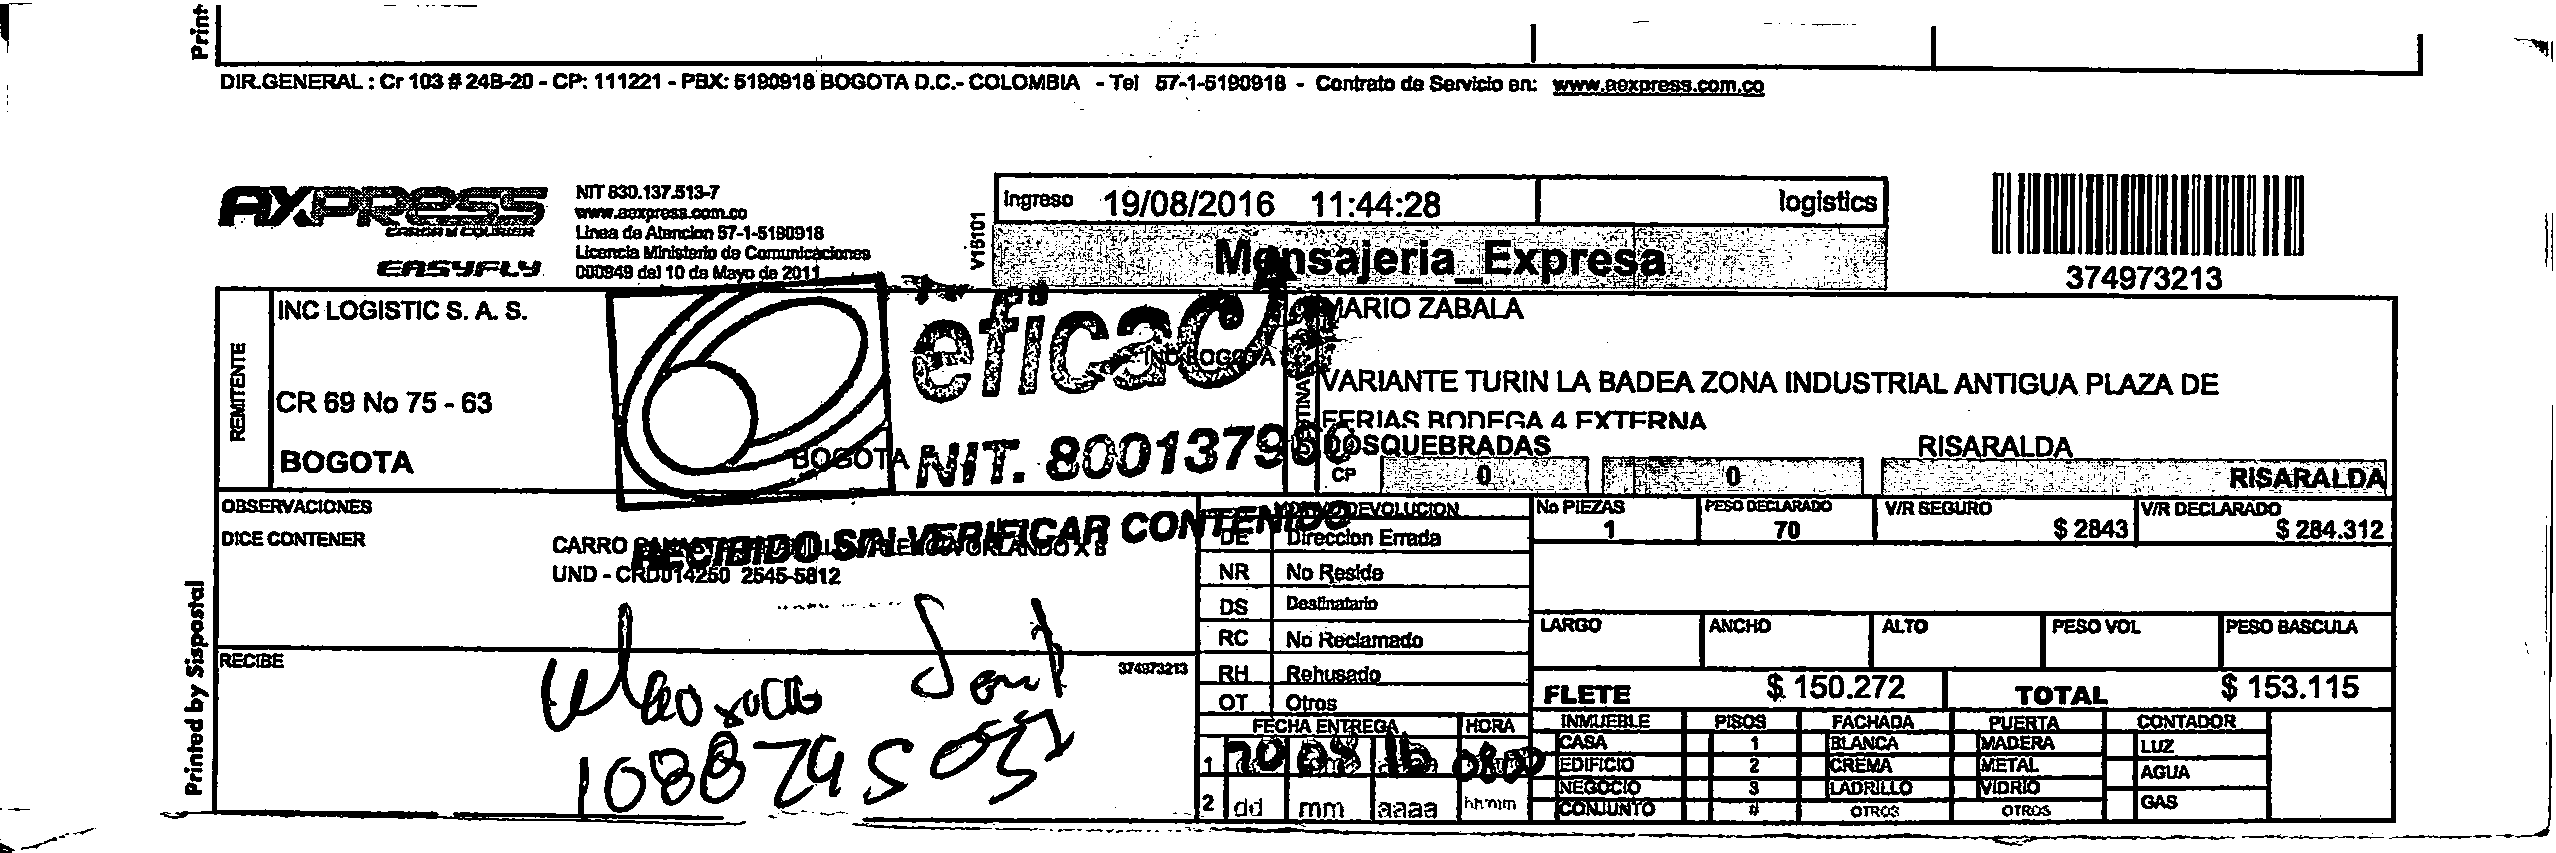 Print
DIR.GENERAL : Cr 103 # 24B-20 - CP: 111221 - PBX: 5190918 BOGOTA D.C.- COLOMBIA - Tel 57-1-5190918 - Contrato de Servicio en: www.aexpress.com.co
AXPRESS
CARGA & COURIER
EASYFLY
NIT 830.137.513-7
www.aexpress.com.co
Linea de Atencion 57-1-5190918
Licencia Ministerio de Comunicaciones
000949 del 10 de Mayo de 2011
V15101
Ingreso 19/08/2016 11:44:28 logistics
Mensajeria_Expresa
374973213
REMITENTE
INC LOGISTIC S. A. S.
CR 69 No 75 - 63
BOGOTA
BOGOTA
eficacia
NIT. 800137960
RECIBIDO SIN VERIFICAR CONTENIDO
MARIO ZABALA
VARIANTE TURIN LA BADEA ZONA INDUSTRIAL ANTIGUA PLAZA DE
FERIAS BODEGA 4 EXTERNA
DOSQUEBRADAS RISARALDA
CP 0 0 RISARALDA
OBSERVACIONES
DICE CONTENER
CARRO ORLANDO X 8
UND - CRD014250 2545-5812
DEVOLUCION
DE Direccion Errada
NR No Reside
DS Destinatario
RC No Reclamado
RH Rehusado
OT Otros
No PIEZAS PESO DECLARADO V/R SEGURO V/R DECLARADO
1 70 $ 2843 $ 284.312
LARGO ANCHO ALTO PESO VOL PESO BASCULA
FLETE $ 150.272 TOTAL $ 153.115
RECIBE
374973213
FECHA ENTREGA HORA
1 20 08 16 0800
2 dd mm aaaa hh:mm
INMUEBLE PISOS FACHADA PUERTA CONTADOR
CASA 1 BLANCA MADERA LUZ
EDIFICIO 2 CREMA METAL AGUA
NEGOCIO 3 LADRILLO VIDRIO GAS
CONJUNTO # OTROS OTROS
Printed by Sispostal